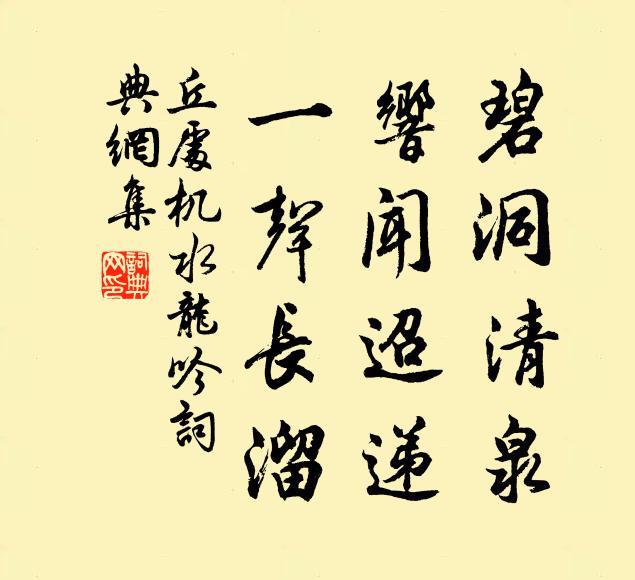 碧洞清泉
響聞迢递
一聲長溜
丘處机水龍吟詞
典網集
詞典網印